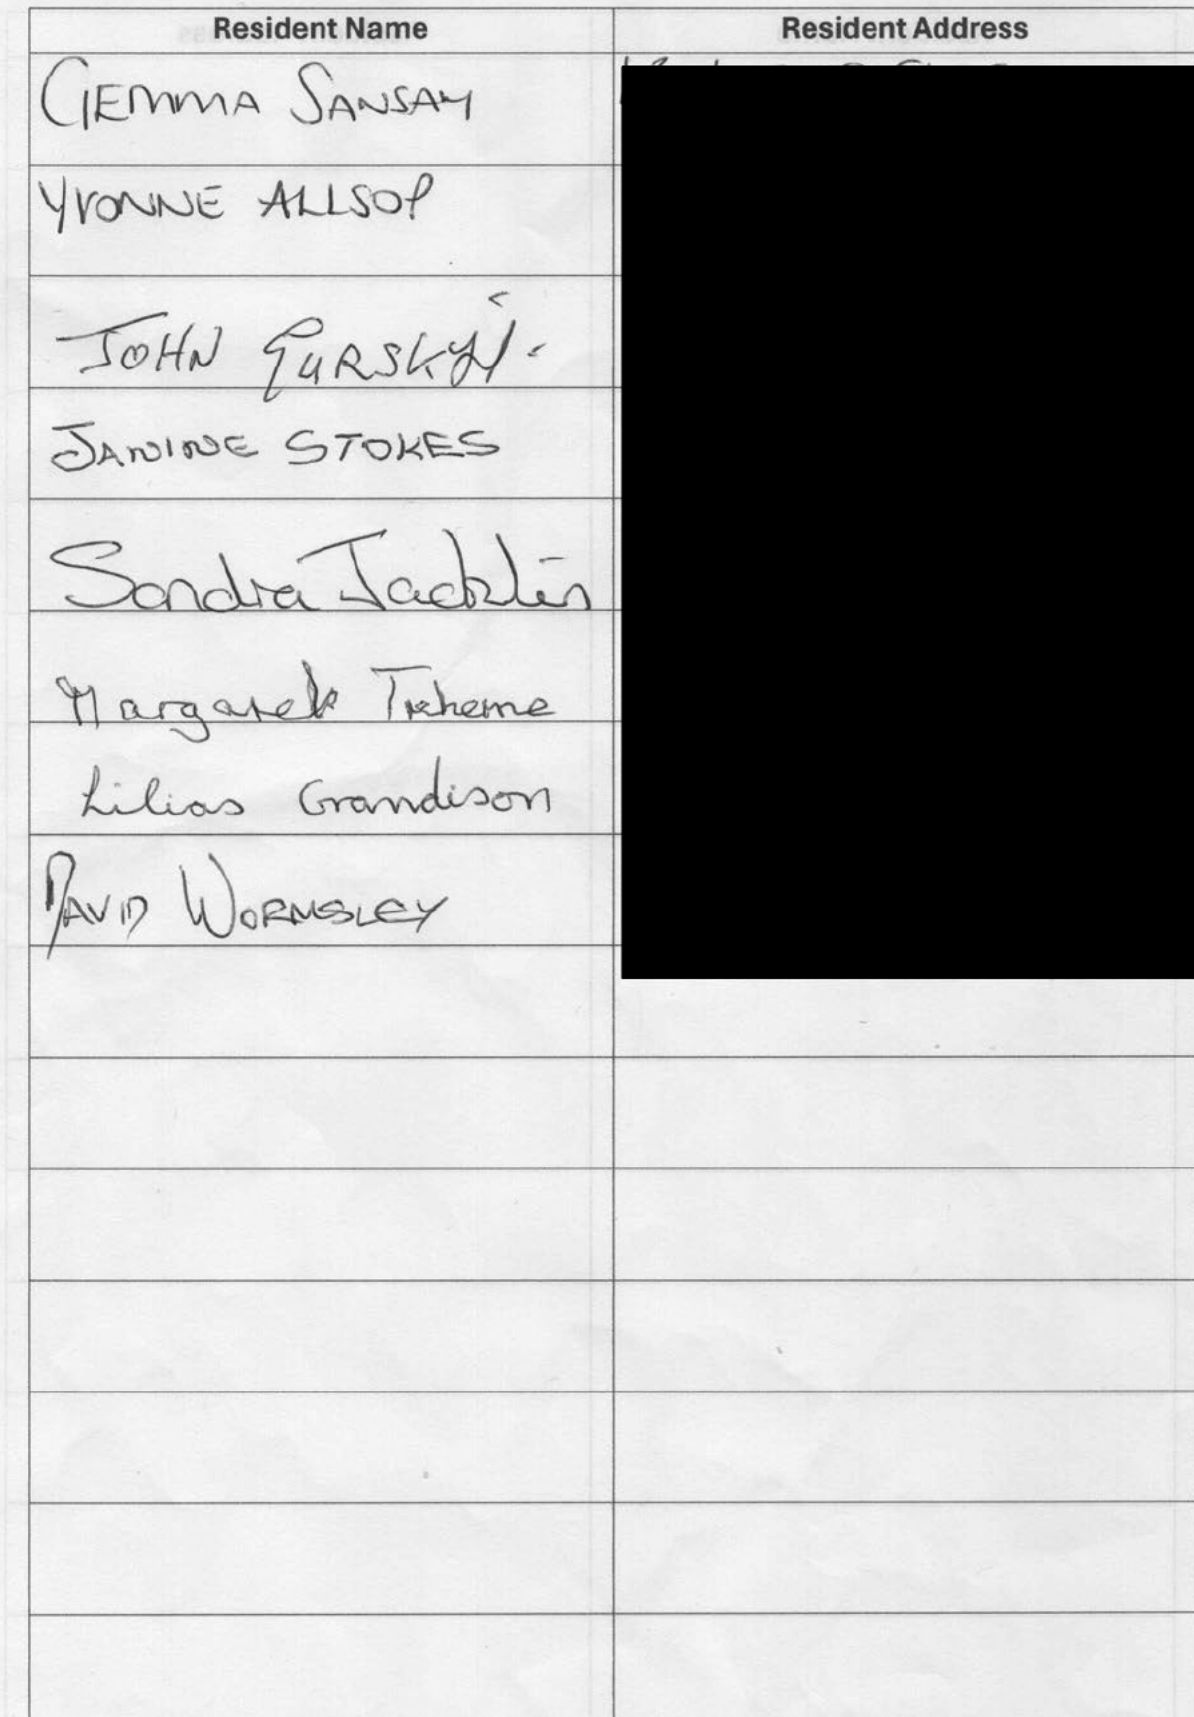 Resident Name Resident Address
GEMMA SANSAM
YVONNE ALLSOP
JOHN GURSKYJ.
JANINE STOKES
Sandra Jacklin
Margaret Treherne
Lilias Grandison
DAVID WORMSLEY